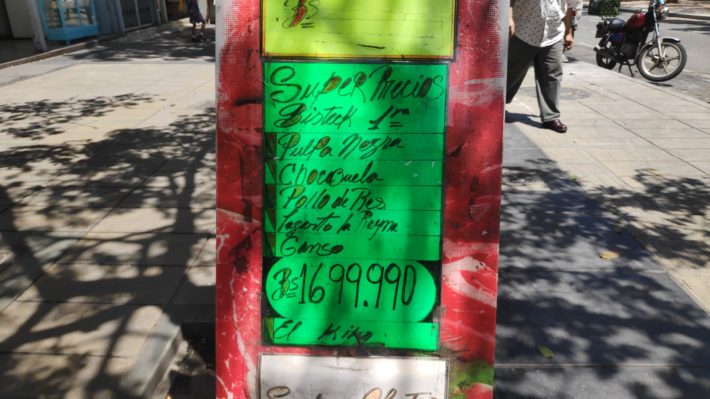 Bs
Super Precios
Bisteck 1ra
Pulpa Negra
Chocozuela
Pollo de Res
Lagarto la Reyna
Ganso
Bs 1699.990
El Kiko